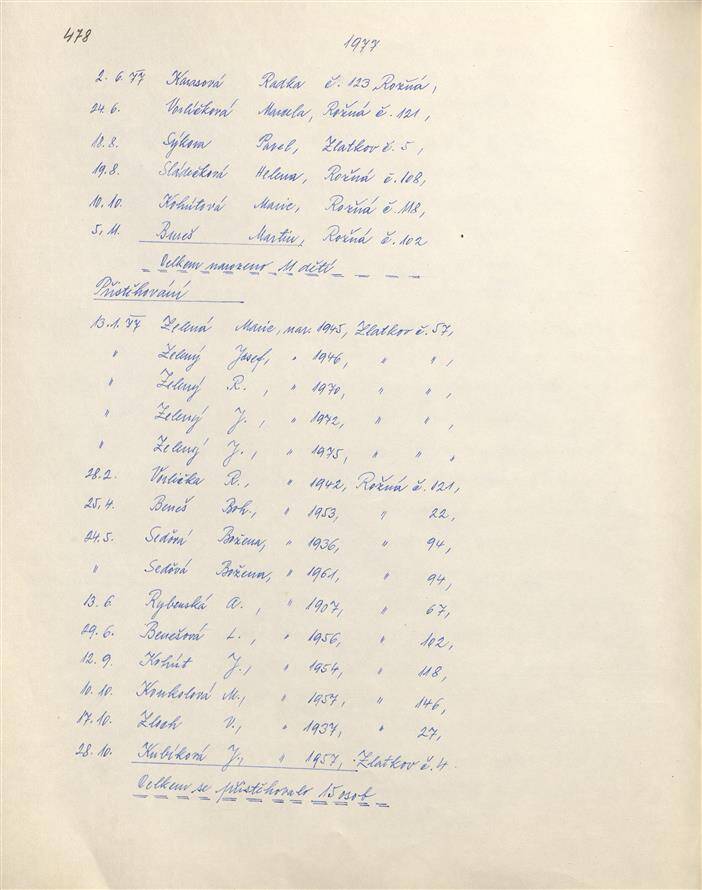 478
1977
2. 6. 77 Karasová Radka č. 123, Rožná,
24.6. Vorlíčková Marcela, Rožná č. 121,
18.8. Sýkora Pavel, Zlatkov č. 5,
19.8. Sládečková Helena, Rožná č. 108,
10.10. Kohútová Marie, Rožná č. 118,
5.11. Beneš Martin, Rožná č. 102
Celkem narozeno 11 dětí
Přistěhování
13.1.77 Zelená Marie, nar. 1945, Zlatkov č. 57,
" Zelený Josef, " 1946, " ",
" Zelený R., " 1970, " ",
" Zelený J., " 1972, " ",
" Zelený J., " 1975, " "
28.2. Vorlíčka R., " 1942, Rožná č. 121,
25.4. Beneš Boh., " 1953, " 22,
24.5. Sedová Božena, " 1936, " 94,
" Sedová Božena, " 1961, " 94,
13.6. Rybenská A., " 1907, " 67,
29.6. Benešová L., " 1956, " 102,
12.9. Kohút J., " 1954, " 118,
10.10. Koukolová M., " 1957, " 146,
17.10. Zloch V., " 1937, " 27,
28.10. Kubíková J., " 1957, Zlatkov č. 4.
Celkem se přistěhovalo 15 osob